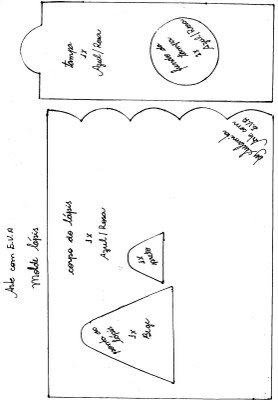 Arte com E.V.A
Molde lápis
corpo do lápis
1x
Azul/Rosa
ponta do
lápis
1x
Bege
1x
Preto
tampa
1x
Azul/Rosa
fundo da
tampa
1x
Azul/Rosa
com